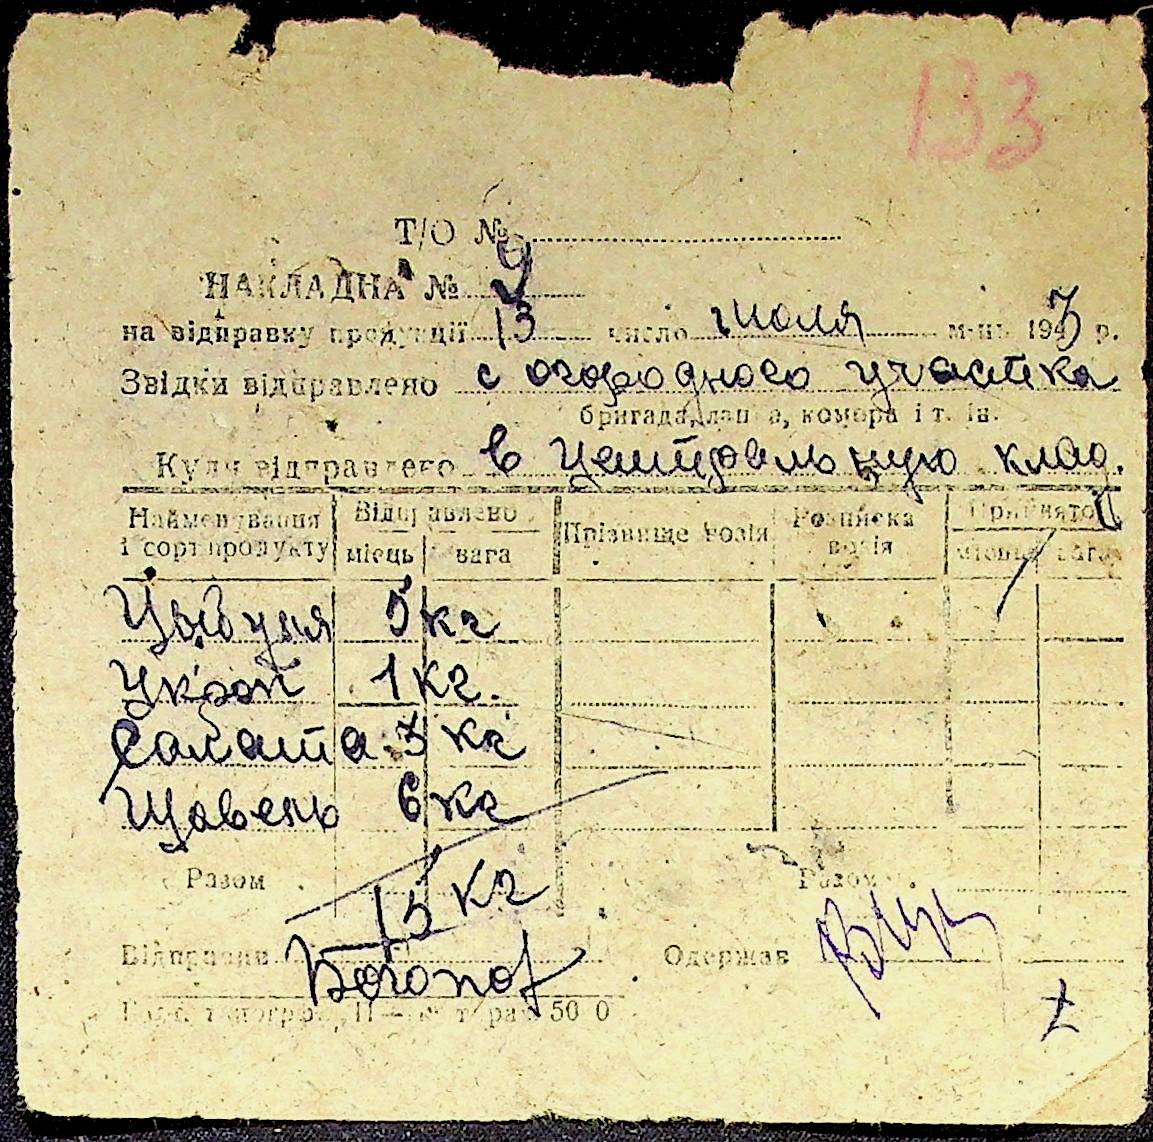 133
Т/О №
НАКЛАДНА № 9
на відправку продукції 13 число июля м-ць 1943 р.
Звідки відправлено с огородного участка
бригада, ланка, комора і т. ін.
Куди відправлено в центральную клад.
Найменування і сорт продукту Відправлено місць вага Прізвище возія Розписка возія Прийнято місць вага
Цыбуля 5 кг
Укроп 1 кг.
Салата 3 кг
Щавень 6 кг
Разом 15 кг Разом
Відправив Одержав